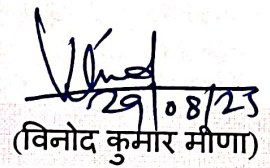 Vinod
29/08/23
(विनोद कुमार मीणा)